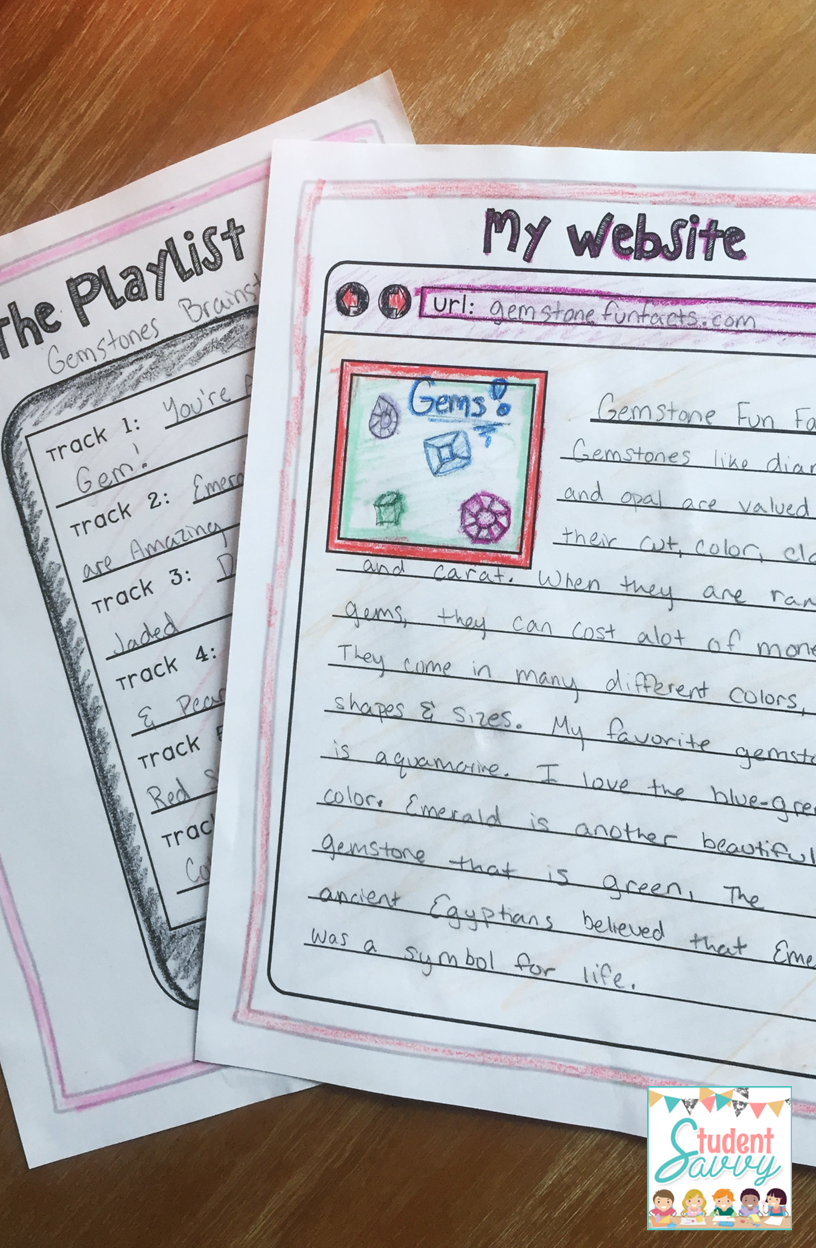 The Playlist
Gemstones Brainst
Track 1: You're A
Gem!
Track 2: Emera
are Amazing
Track 3: D
Jaded
Track 4:
& Pear
Track 5
Red S
Trac
Co
My Website
url: gemstonefunfacts.com
Gems!
Gemstone Fun Fa
Gemstones like diam
and opal are valued
their cut, color, cla
and carat. When they are rar
gems, they can cost alot of mone
They come in many different colors,
shapes & sizes. My favorite gemsto
is aquamarine. I love the blue-gree
color. Emerald is another beautiful
gemstone that is green. The
ancient Egyptians believed that Eme
was a symbol for life.
Student
Savvy